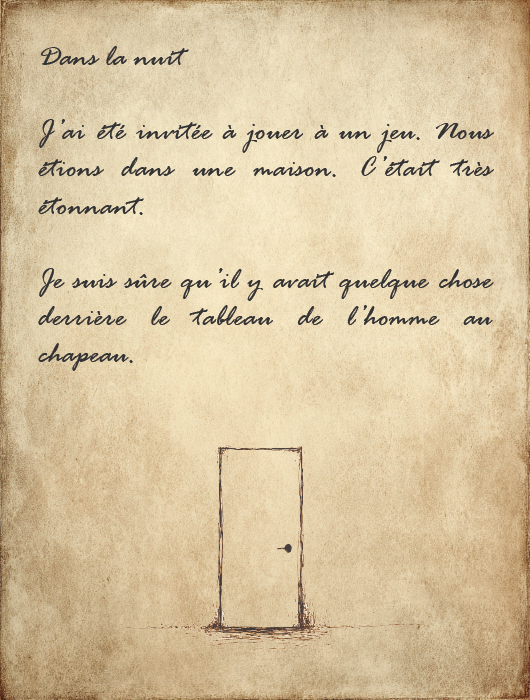 Dans la nuit
J'ai été invitée à jouer à un jeu. Nous
étions dans une maison. C'était très
étonnant.
Je suis sûre qu'il y avait quelque chose
derrière le tableau de l'homme au
chapeau.